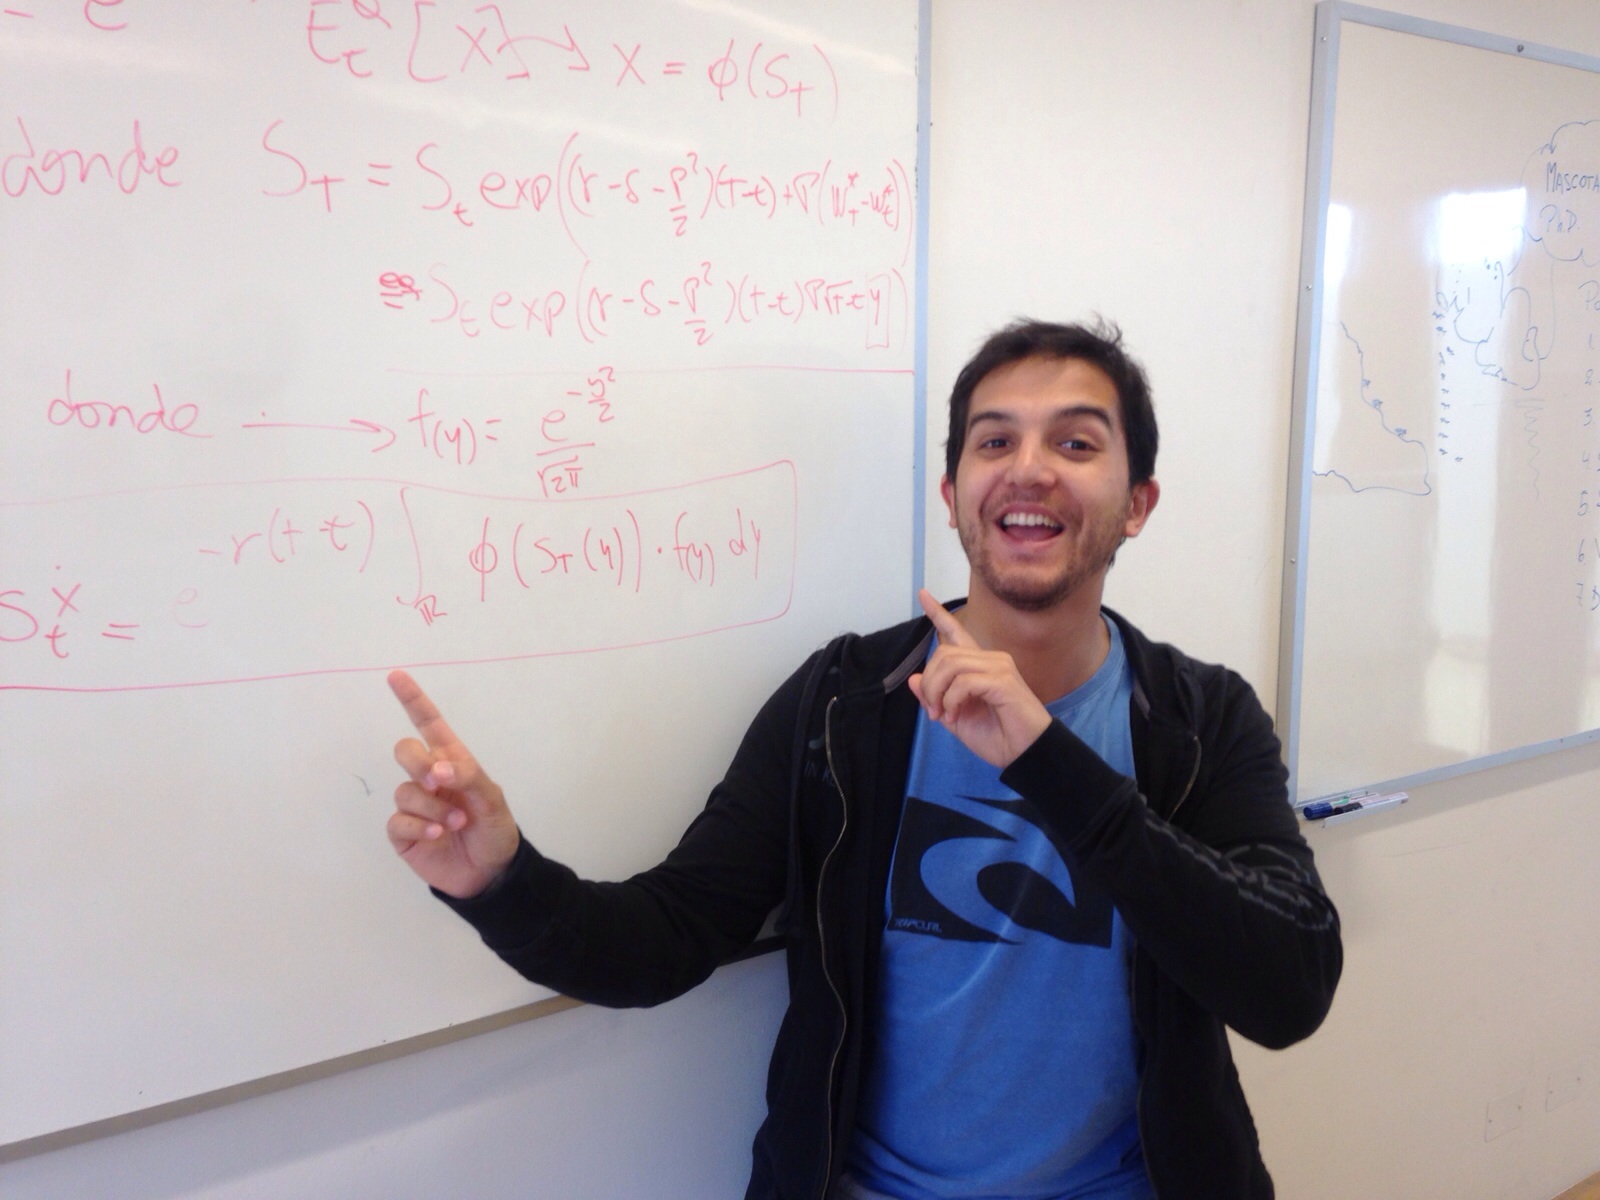 - e E_t^Q [X] → X = φ(S_T)
donde S_T = S_t exp((r-δ-ρ²/2)(T-t)+ρ(W_T^*-W_t^*))
eq = S_t exp((r-δ-ρ²/2)(T-t)ρ√T-t y)
donde → f(y) = e^{-y²/2}/√2π
S_t^X = e^{-r(T-t)} ∫_ℝ φ(S_T(y))·f(y) dy
RIPCURL
MASCOTA
Ph.D.
1.
2.
3.
4.
5.
6
7.